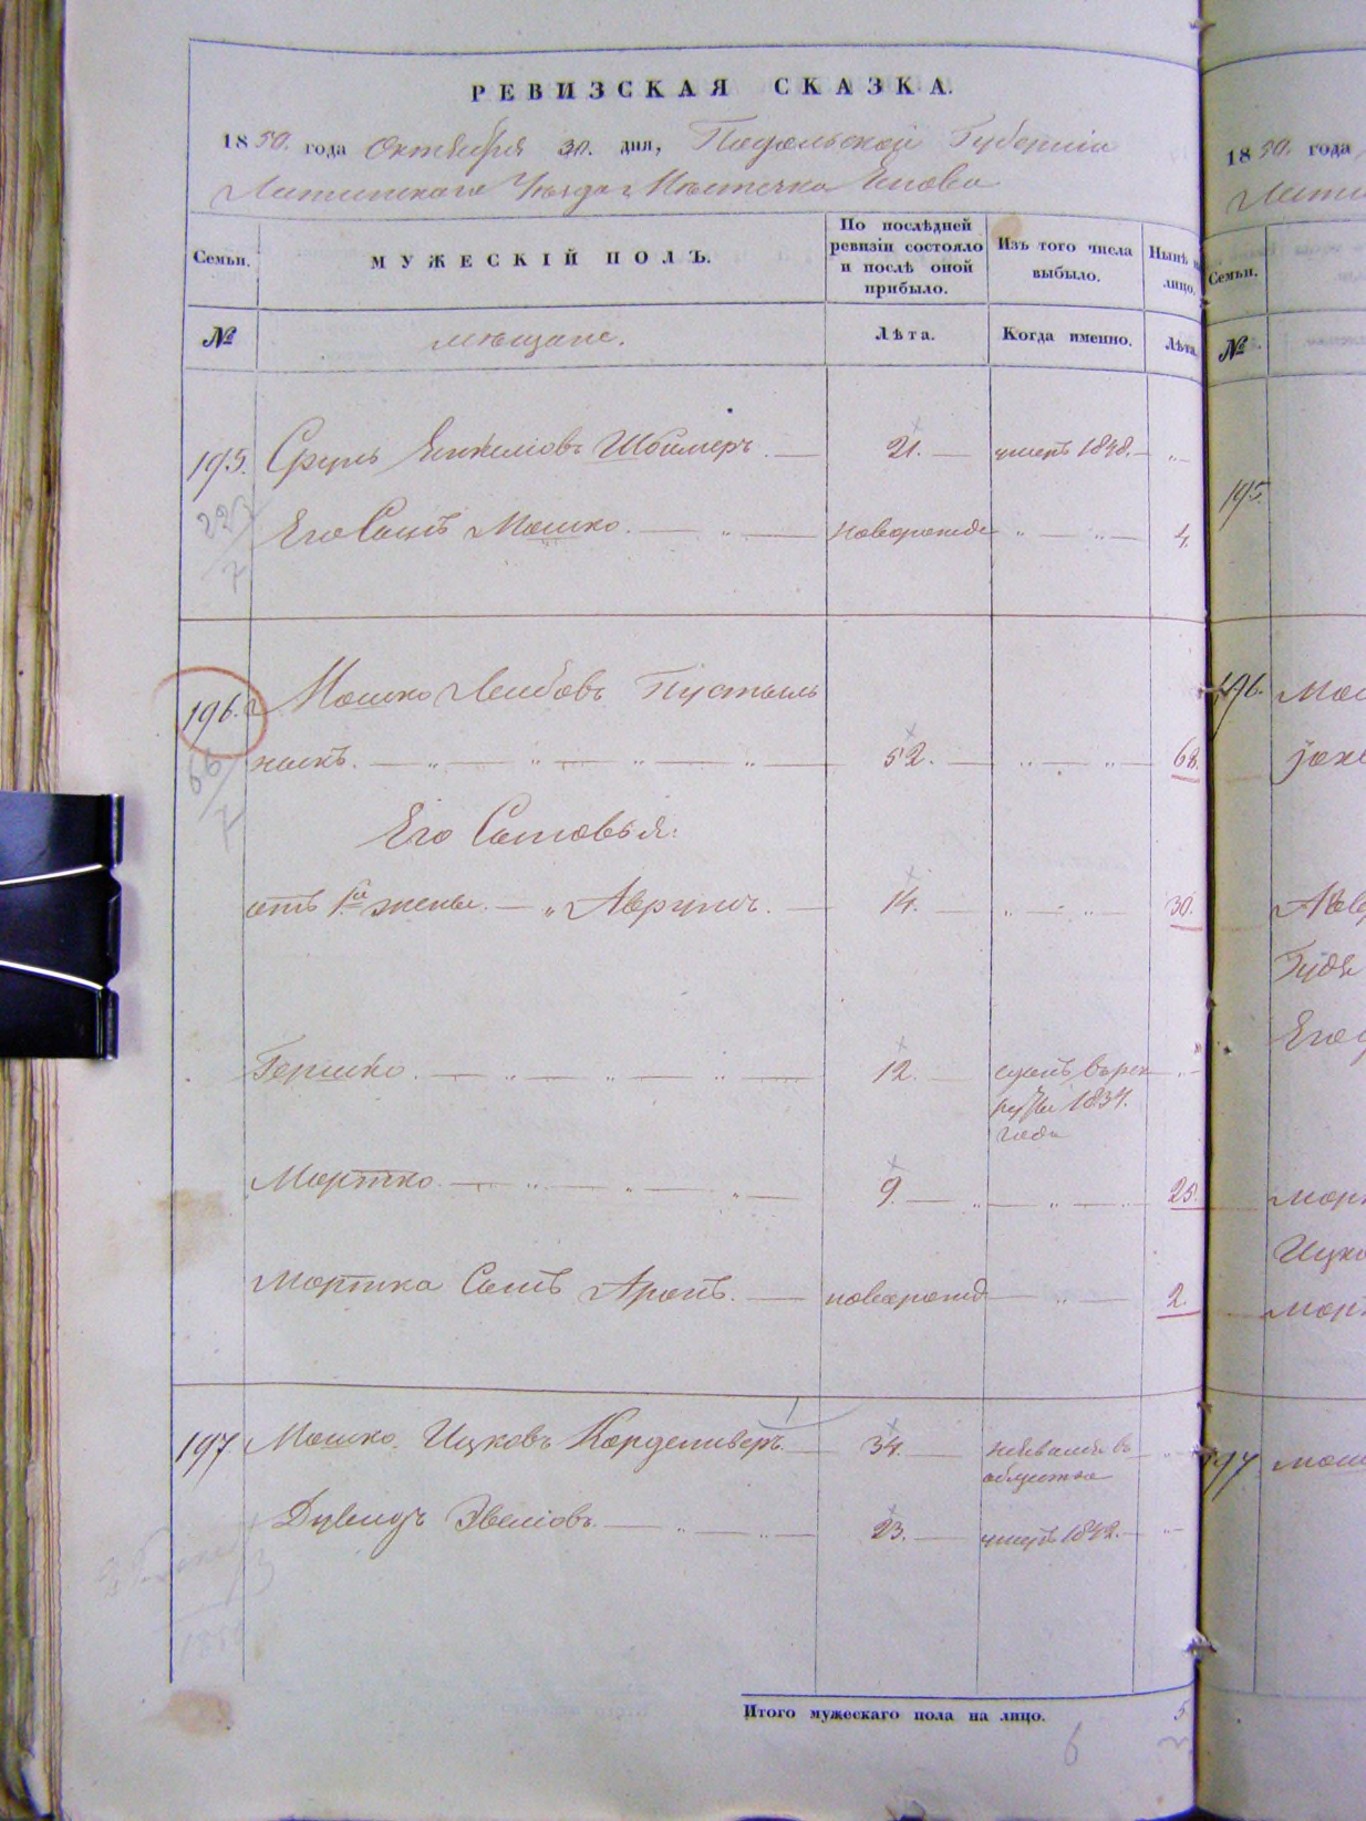 РЕВИЗСКАЯ СКАЗКА.
1850. года Октября 30. дня, Подольской Губернии
Литинскаго Уѣзда Мѣстечка Янова
Семьи.
МУЖЕСКІЙ ПОЛЪ.
По послѣдней ревизіи состояло и послѣ оной прибыло.
Изъ того числа выбыло.
Нынѣ на лицо.
№
мѣщане.
Лѣта.
Когда именно.
Лѣта.
195. Сруль Янкелювъ 21. умеръ 1848.
227/7
Его Сынъ Мошко. новорожде 4.
196. Мошко Лейбовъ Пустыль
66/7
никъ. 52. 68.
Его Сыновья:
отъ 1й жены. Аврумъ. 14. 30.
Гершко. 12. 
1834. года
Мортко. 9. 25.
Мортка Сынъ Аронъ. новорожд 2.
197 Мошко Ицковъ 34.
Дувидъ 23. умеръ 1842.
Итого мужескаго пола на лицо. 5
6
1850 года
Лити
Семьи.
№
195.
196. Мош
жен
Гудя
Его
Морт
Ицко
Морт
197 Мош